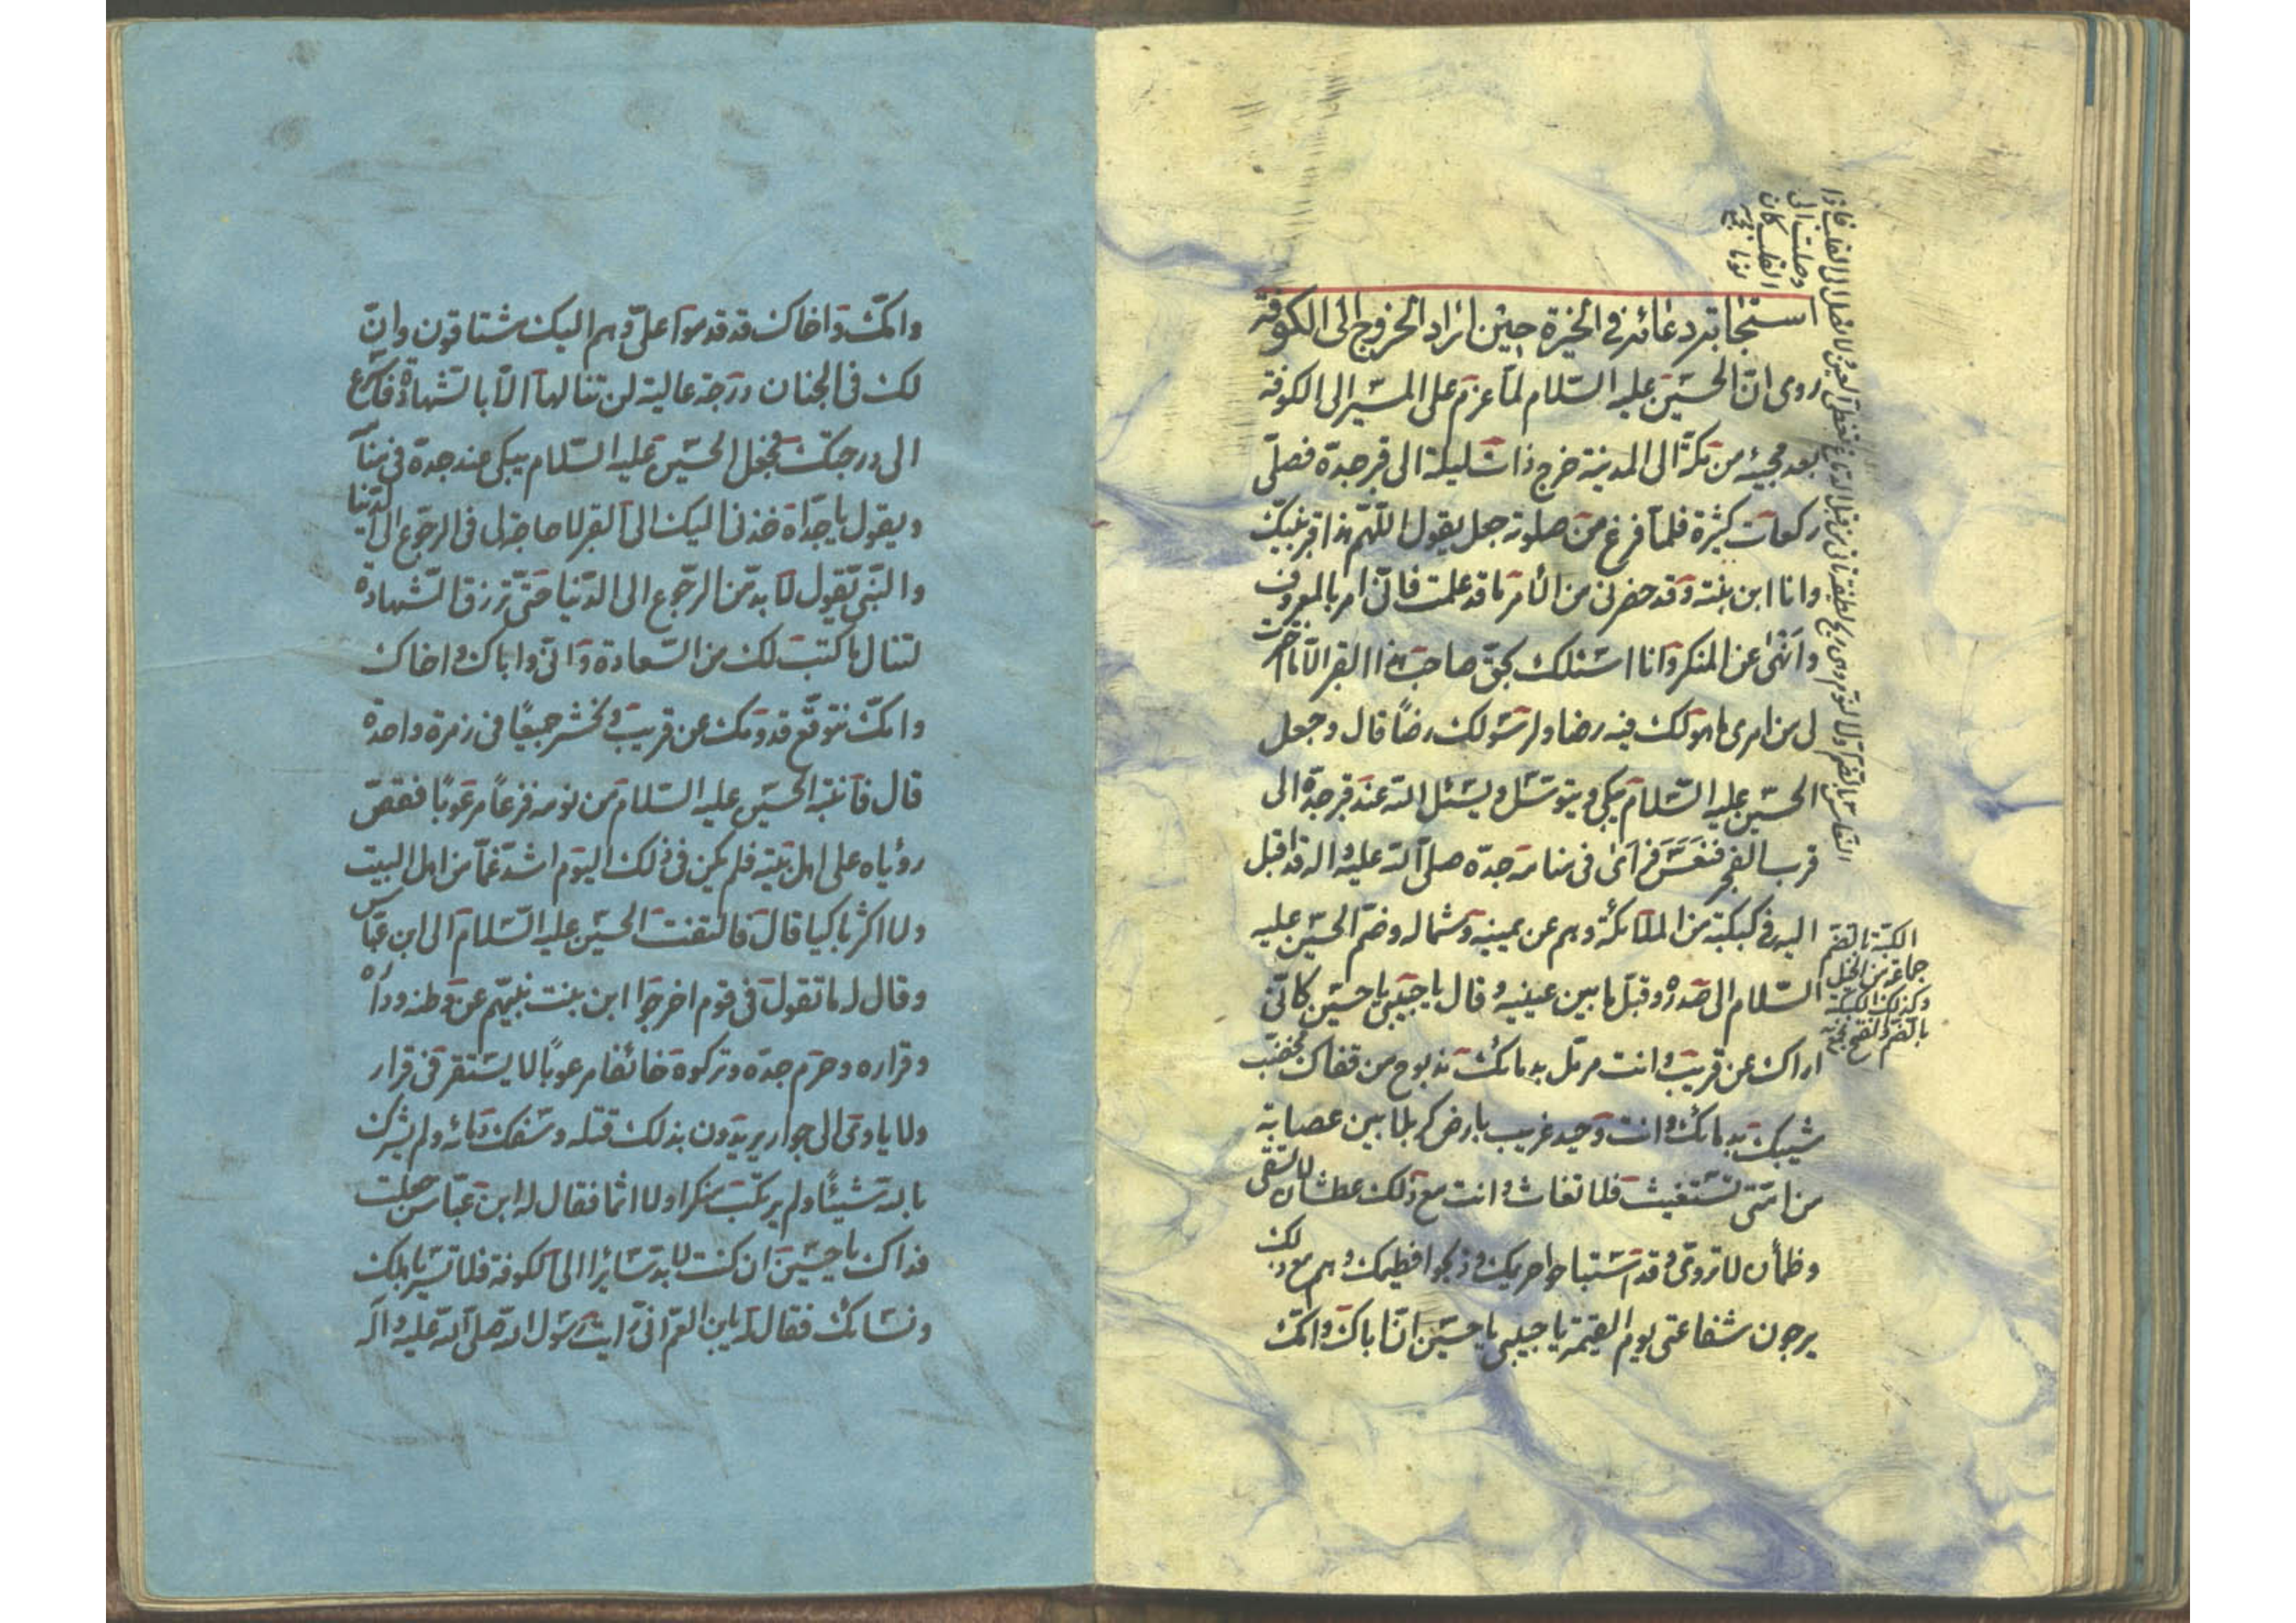 استجابة دعائه في الخيرة حين اراد الخروج الى الكوفة
روى انّ الحسين عليه السّلام لمّا عزم على المسير الى الكوفة
بعد مجيئه من مكّة الى المدينة خرج ذات ليلة الى قبر جدّه فصلّى
ركعات كثيرة فلمّا فرغ من صلوته جعل يقول اللّهمّ هذا قبر نبيّك
وانا ابن بنته وقد حضرنى من الأمر ما قد علمت فانّى امر بالمعروف
وانهى عن المنكر وانا اسئلك بحقّ صاحب هذا القبر الّا ما اخترت
لى من امرى ما هو لك فيه رضا ولرسولك رضاً قال وجعل
الحسين عليه السّلام يبكى ويتوسّل ويسئل الله عند قبر جدّه الى
قرب الفجر فنعس فرأى فى منامه جدّه صلّى الله عليه واله قد اقبل
اليه فى كبكبة من الملائكة وهم عن يمينه وشماله وضمّ الحسين عليه
السّلام الى صدره وقبّل ما بين عينيه وقال يا حبيبى يا حسين كانّى
اراك عن قريب وانت مرمّل بدمائك مذبوح من قفاك مخضّب
شيبك بدمائك وانت وحيد غريب بارض كربلا بين عصابة
من امّتى تستغيث فلا تغاث وانت مع ذلك عطشان لا تسقى
وظمأن لا تروى وقد استباحوا حريمك وذبحوا فطيمك وهم مع ذلك
يرجون شفاعتى يوم القيمة يا حبيبى يا حسين انّ اباك وامّك
الكبّة بالضم
جماعة من الخيل
وكذلك الكبكبة
بالضم والفتح
وامّك واخاك قد قدموا علىّ وهم اليك مشتاقون وانّ
لك فى الجنان درجة عالية لن تنالها الّا بالشّهادة فاسرع
الى درجتك فجعل الحسين عليه السّلام يبكى عند جدّه فى منامه
ويقول يا جدّاه خذنى اليك الى القبر لا حاجة لى فى الرجوع الى الدّنيا
والنّبى يقول لا بدّ من الرجوع الى الدّنيا حتّى ترزق الشّهادة
لتنال ما كتب لك من السّعادة وانّى واباك واخاك
وامّك نتوقّع قدومك عن قريب ونحشر جميعًا فى زمرة واحدة
قال فانتبه الحسين عليه السّلام من نومه فزعاً مرعوبًا فقصّ
رؤياه على اهل بيته فلم يكن فى ذلك اليوم اشدّ غمّا من اهل البيت
ولا اكثر باكيا قال فالتفت الحسين عليه السّلام الى ابن عبّاس
وقال له ما تقول فى قوم اخرجوا ابن بنت نبيّهم عن وطنه وداره
وقراره وحرم جدّه وتركوه خائفا مرعوبًا لا يستقر فى قرار
ولا ياوى الى جوار يريدون بذلك قتله وسفك دمائه ولم يشرك
بالله شيئًا ولم يرتكب منكرا ولا اثما فقال له ابن عبّاس جعلت
فداك يا حسين ان كنت لا بد سائرا الى الكوفة فلا تسير باهلك
ونسائك فقال له يا بن العم انّى رايت رسول الله صلّى الله عليه وآله